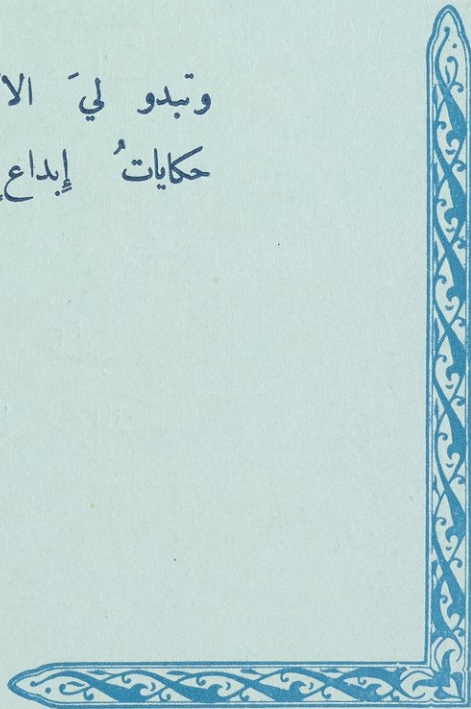 وتبدو ليَ
حكاياتُ إِبداعٍ